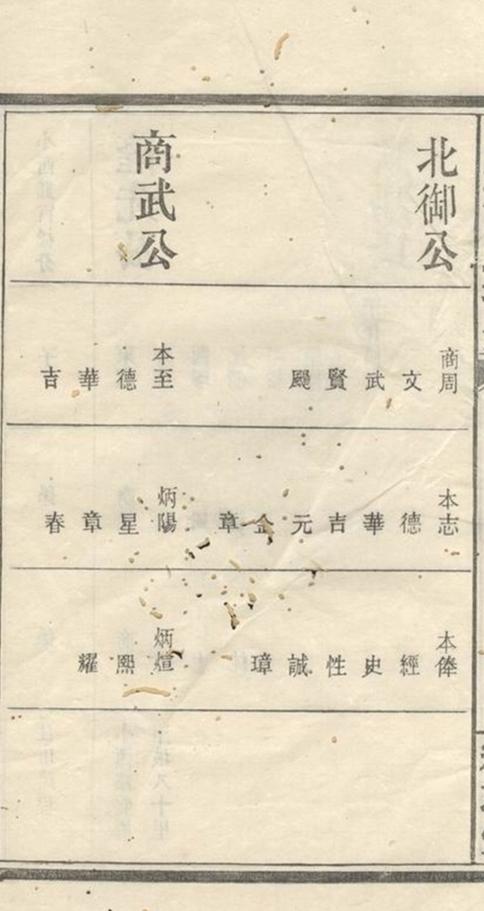 北御公
商周 文 武 賢 颺
本志 德 華 吉 元 金 章
本俸 經 史 性 誠 璋
商武公
本至 德 華 吉
炳陽 星 章 春
炳煊 熙 耀